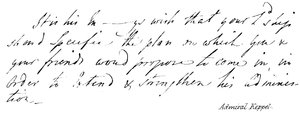 It is his M----ys wish that your L'dship
should specific the plan on which you &
your friends would propose to come in, in
order to extend & strengthen his adminis-
tion -
Admiral Keppel.